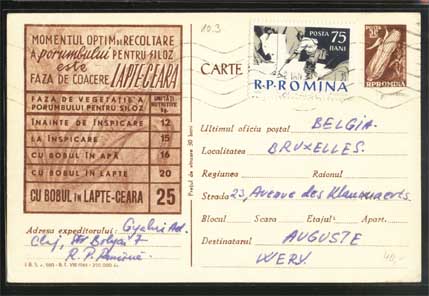 10.3
MOMENTUL OPTIM DE RECOLTARE
A porumbului PENTRU SILOZ
este
FAZA DE COACERE LAPTE-CEARA
FAZA DE VEGETAȚIE A PORUMBULUI PENTRU SILOZ
UNITĂȚI NUTRITIVE kg.
ÎNAINTE DE ÎNSPICARE 12
LA ÎNSPICARE 15
CU BOBUL ÎN APĂ 16
CU BOBUL ÎN LAPTE 20
CU BOBUL ÎN LAPTE-CEARA 25
Adresa expeditorului: Ad.
Cluj, Str Bolyai 7
R. P. Romînă
CARTE
POSTA 75
BANI
R.P.ROMINA
R.P.ROMINA
Prețul de vînzare 30 bani
Ultimul oficiu poștal BELGIA.
Localitatea BRUXELLES.
Regiunea Raionul
Strada 23, Avenue des
Blocul Scara Etajul Apart.
Destinatarul AUGUSTE
WERY
40,-